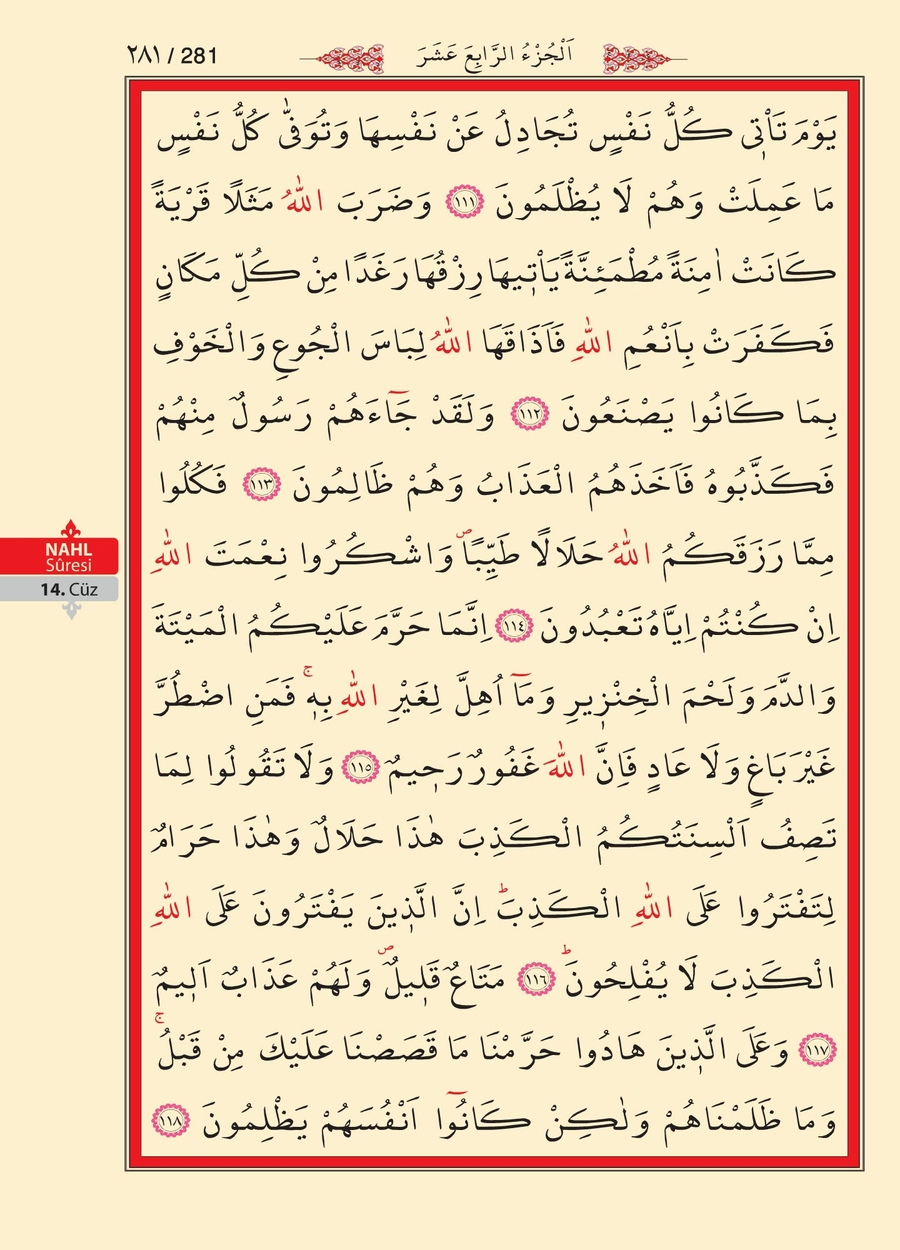 ٢٨١ / 281
اَلْجُزْءُ الرَّابِعَ عَشَرَ
يَوْمَ تَأْت۪ي كُلُّ نَفْسٍ تُجَادِلُ عَنْ نَفْسِهَا وَتُوَفّٰى كُلُّ نَفْسٍ
مَا عَمِلَتْ وَهُمْ لَا يُظْلَمُونَ ﴿١١١﴾ وَضَرَبَ اللّٰهُ مَثَلًا قَرْيَةً
كَانَتْ اٰمِنَةً مُطْمَئِنَّةً يَأْت۪يهَا رِزْقُهَا رَغَدًا مِنْ كُلِّ مَكَانٍ
فَكَفَرَتْ بِاَنْعُمِ اللّٰهِ فَاَذَاقَهَا اللّٰهُ لِبَاسَ الْجُوعِ وَالْخَوْفِ
بِمَا كَانُوا يَصْنَعُونَ ﴿١١٢﴾ وَلَقَدْ جَٓاءَهُمْ رَسُولٌ مِنْهُمْ
فَكَذَّبُوهُ فَاَخَذَهُمُ الْعَذَابُ وَهُمْ ظَالِمُونَ ﴿١١٣﴾ فَكُلُوا
مِمَّا رَزَقَكُمُ اللّٰهُ حَلَالًا طَيِّبًاۖ وَاشْكُرُوا نِعْمَتَ اللّٰهِ
اِنْ كُنْتُمْ اِيَّاهُ تَعْبُدُونَ ﴿١١٤﴾ اِنَّمَا حَرَّمَ عَلَيْكُمُ الْمَيْتَةَ
وَالدَّمَ وَلَحْمَ الْخِنْز۪يرِ وَمَٓا اُهِلَّ لِغَيْرِ اللّٰهِ بِه۪ۚ فَمَنِ اضْطُرَّ
غَيْرَ بَاغٍ وَلَا عَادٍ فَاِنَّ اللّٰهَ غَفُورٌ رَح۪يمٌ ﴿١١٥﴾ وَلَا تَقُولُوا لِمَا
تَصِفُ اَلْسِنَتُكُمُ الْكَذِبَ هٰذَا حَلَالٌ وَهٰذَا حَرَامٌ
لِتَفْتَرُوا عَلَى اللّٰهِ الْكَذِبَؕ اِنَّ الَّذ۪ينَ يَفْتَرُونَ عَلَى اللّٰهِ
الْكَذِبَ لَا يُفْلِحُونَؕ ﴿١١٦﴾ مَتَاعٌ قَل۪يلٌۖ وَلَهُمْ عَذَابٌ اَل۪يمٌ
﴿١١٧﴾ وَعَلَى الَّذ۪ينَ هَادُوا حَرَّمْنَا مَا قَصَصْنَا عَلَيْكَ مِنْ قَبْلُۚ
وَمَا ظَلَمْنَاهُمْ وَلٰكِنْ كَانُٓوا اَنْفُسَهُمْ يَظْلِمُونَ ﴿١١٨﴾
NAHL
Sûresi
14. Cüz